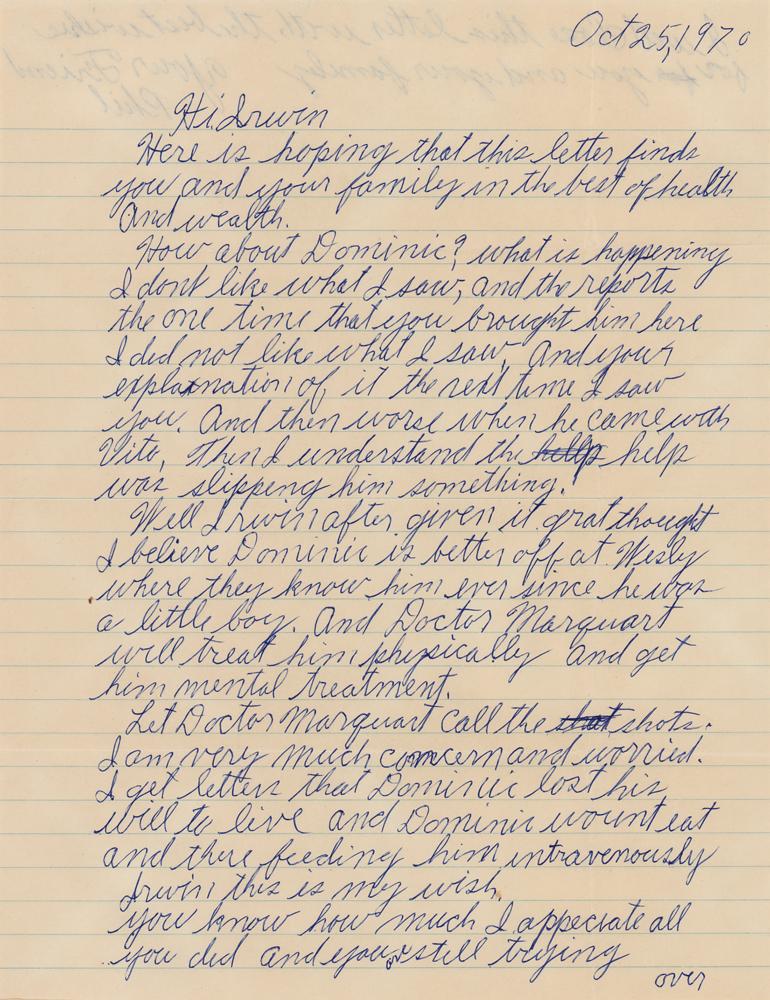 Oct 25, 1970
Hi. Irwin
Here is hoping that this letter finds
you and your family in the best of health
And wealth.
How about Dominic? what is happening
I dont like what I saw, and the reports
the one time that you brought him here
I did not like what I saw. And your
explaination of it the next time I saw
you. And then worse when he came with
Vito, Then I understand the hellp help
was slipping him something.
Well Irwin after given it grat thought
I believe Dominic is better off at Wesly
where they know him ever since he was
a little boy. And Doctor Marquart
will treat him physically and get
him mental treatment.
Let Doctor Marquart call the shot shots.
I am very much comcern and worried.
I get letters that Dominic lost his
will to live and Dominic wount eat
and there feeding him intravenously
Irwin this is my wish.
you know how much I appeciate all
you did and your still trying
over